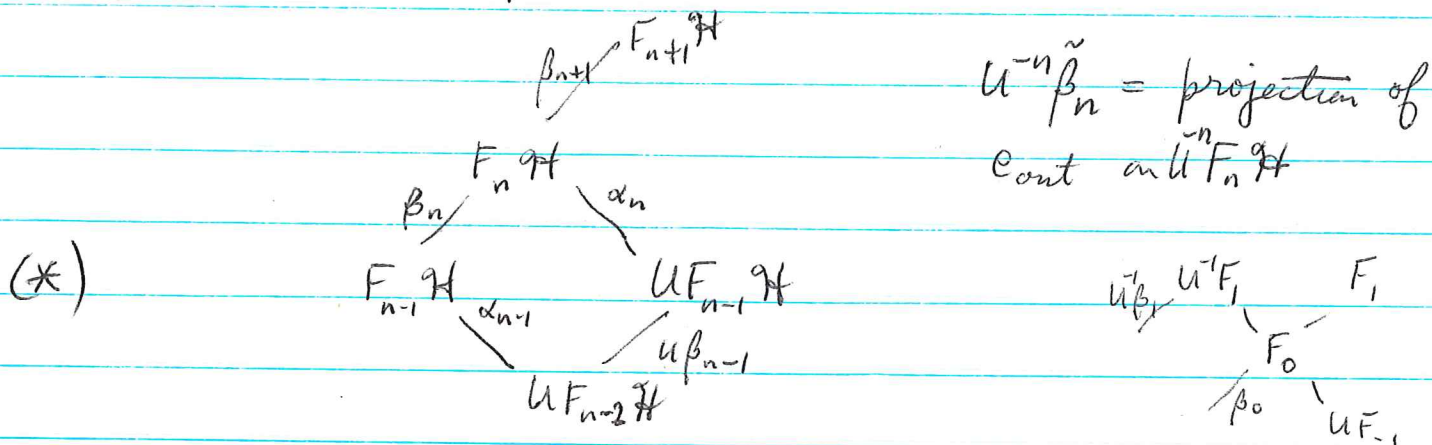 F_{n+1}ℋ
β_{n+1}
U^{-n} β̃_n = projection of
e_{out} on U^{-n} F_n ℋ
F_n ℋ
β_n α_n
(*) F_{n-1} ℋ UF_{n-1} ℋ
α_{n-1} Uβ_{n-1}
UF_{n-2} ℋ
U^{-1}β_1 U^{-1}F_1 F_1
F_0
β_0
UF_{-1}